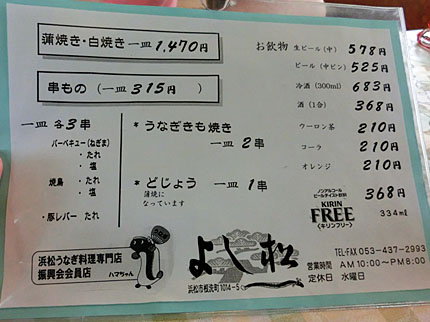 蒲焼き・白焼き 一皿 1,470円
串もの（一皿 315円 ）
一皿 各3串
バーベキュー(ねぎま)
・たれ
・塩
焼鳥 ・たれ
・塩
・豚レバー ・たれ
* うなぎきも焼き
一皿 2串
* どじょう 一皿 1串
蒲焼に
なっています
お飲物 生ビール(中) 578円
ビール(中ビン) 525円
冷酒(300ml) 683円
酒(1合) 368円
ウーロン茶 210円
コーラ 210円
オレンジ 210円
ノンアルコール
ビールテイスト飲料 368円
KIRIN
FREE
<キリンフリー> 334ml
浜松うなぎ料理専門店
振興会会員店
うなぎ
ハマちゃん
よし松
浜松市根洗町1014-5
TEL・FAX 053-437-2993
営業時間 AM10:00~PM8:00
定休日 水曜日